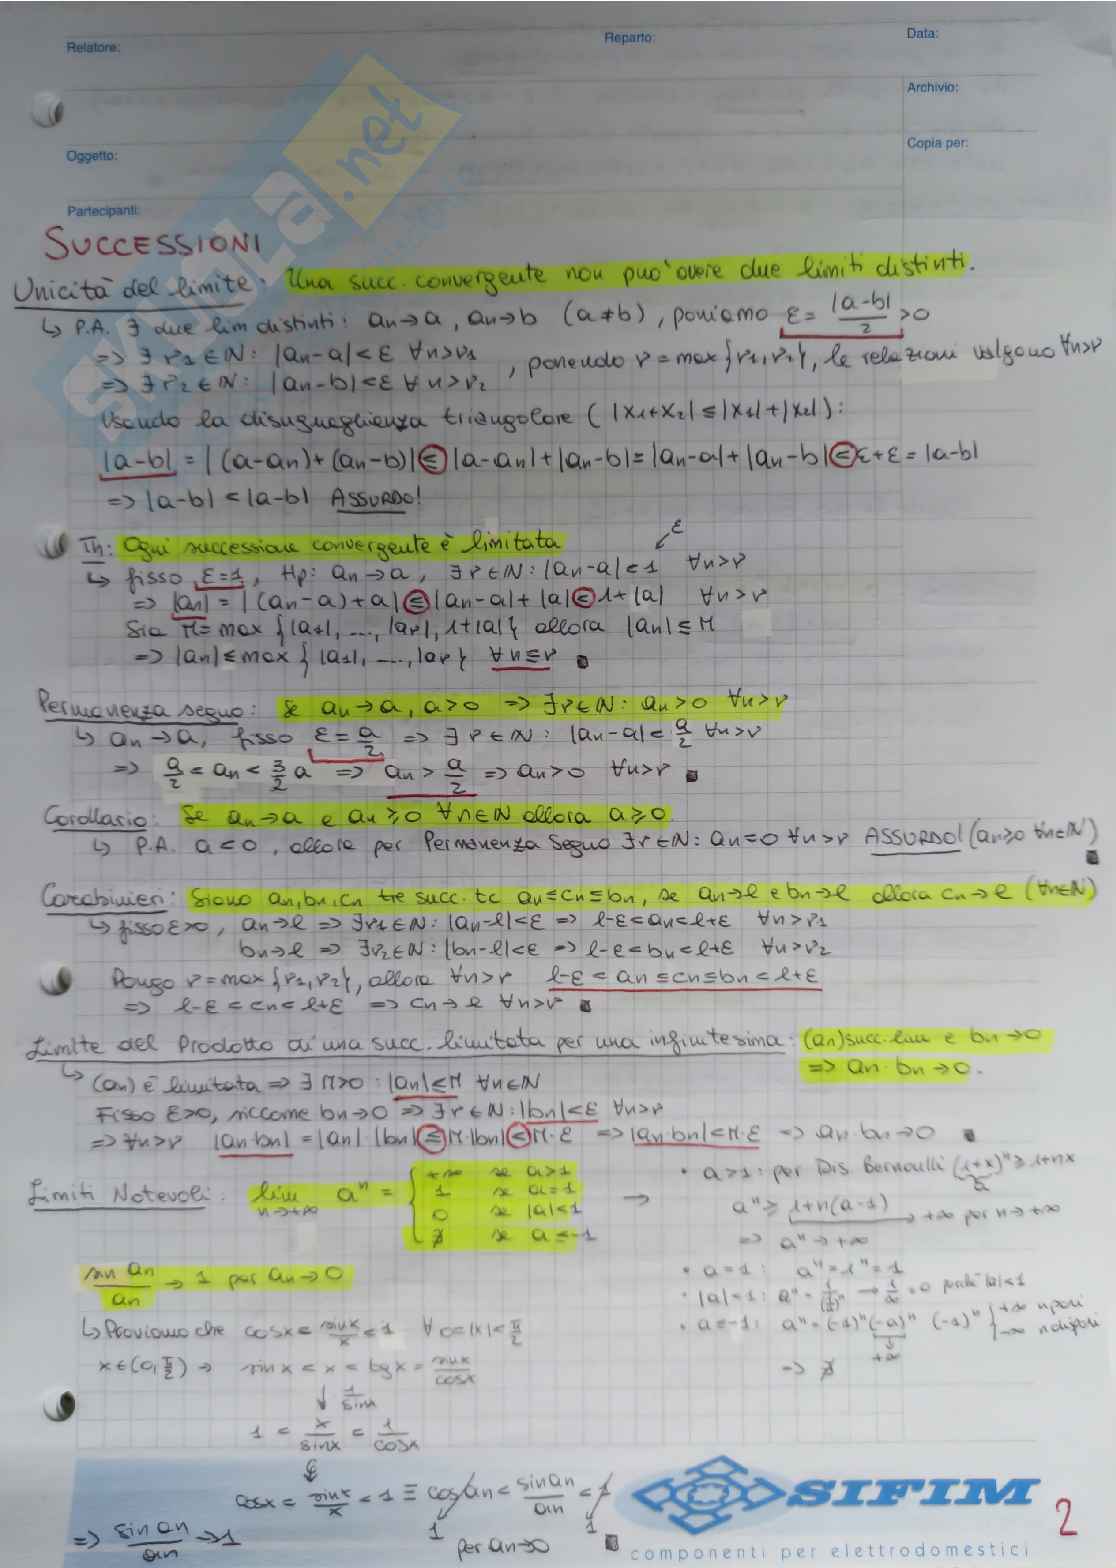 Relatore:
Reparto:
Data:
Archivio:
Oggetto:
Copia per:
Partecipanti:
SKUOLA.net
SUCCESSIONI
Unicità del limite: Una succ. convergente non puo' avere due limiti distinti.
↳ P.A. ∃ due lim distinti: an→a, an→b (a≠b), poniamo ε = |a-b|/2 > 0
=> ∃ ν1∈N: |an-a|<ε ∀n>ν1
=> ∃ ν2∈N: |an-b|<ε ∀n>ν2, ponendo ν = max{ν1,ν2}, le relazioni valgono ∀n>ν
Usando la disuguaglianza triangolare (|x1+x2| ≤ |x1|+|x2|):
|a-b| = |(a-an)+(an-b)| ≤ |a-an|+|an-b| = |an-a|+|an-b| < ε+ε = |a-b|
=> |a-b| < |a-b| ASSURDO!
Th: Ogni successione convergente è limitata
↳ fisso ε=1, Hp: an→a, ∃ν∈N: |an-a|<1 ∀n>ν
ε
=> |an| = |(an-a)+a| ≤ |an-a|+|a| < 1+|a| ∀n>ν
Sia M = max{|a1|, ..., |aν|, 1+|a|} allora |an| ≤ M
=> |an| ≤ max{|a1|, ..., |aν|} ∀n≤ν
Permanenza segno: Se an→a, a>0 => ∃ν∈N: an>0 ∀n>ν
↳ an→a, fisso ε=a/2 => ∃ν∈N: |an-a|<a/2 ∀n>ν
=> a/2 < an < 3/2 a => an > a/2 => an>0 ∀n>ν
Corollario: Se an→a e an≥0 ∀n∈N allora a≥0
↳ P.A. a<0, allora per Permanenza Segno ∃ν∈N: an<0 ∀n>ν ASSURDO! (an≥0 ∀n∈N)
Carabinieri: Siano an, bn, cn tre succ. tc an≤cn≤bn, se an→l e bn→l allora cn→l (∀n∈N)
↳ fisso ε>0, an→l => ∃ν1∈N: |an-l|<ε => l-ε<an<l+ε ∀n>ν1
bn→l => ∃ν2∈N: |bn-l|<ε => l-ε<bn<l+ε ∀n>ν2
Pongo ν=max{ν1,ν2}, allora ∀n>ν l-ε<an≤cn≤bn<l+ε
=> l-ε<cn<l+ε => cn→l ∀n>ν
Limite del Prodotto di una succ. limitata per una infinitesima: (an) succ. lim e bn→0
=> an·bn→0.
↳ (an) è limitata => ∃ M>0: |an|≤M ∀n∈N
Fisso ε>0, siccome bn→0 => ∃ν∈N: |bn|<ε ∀n>ν
=> ∀n>ν |an·bn| = |an| |bn| ≤ M·|bn| < M·ε => |an·bn|<M·ε => an·bn→0
Limiti Notevoli: lim n→+∞ a^n = { +∞ se a>1
1 se a=1
0 se |a|<1
∄ se a≤-1
→
• a>1: per Dis. Bernoulli (1+x)^n ≥ 1+nx
a
a^n ≥ 1+n(a-1) → +∞ per n→+∞
=> a^n→+∞
• a=1: a^n=1^n=1
• |a|<1: a^n = 1/(1/a)^n → 1/∞ = 0 perchè |a|<1
• a≤-1: a^n=(-1)^n(-a)^n (-1)^n { +∞ n pari
-∞ n dispari
+∞
=> ∄
sin an / an → 1 per an→0
↳ Proviamo che cosx < sinx/x < 1 ∀ 0<|x|<π/2
x∈(0,π/2) → sinx < x < tgx = sinx/cosx
↓ 1/sinx
1 < x/sinx < 1/cosx
cosx < sinx/x < 1 ≡ cos an < sin an/an < 1
1
1
per an→0
=> sin an/an → 1
SIFIM
componenti per elettrodomestici
2